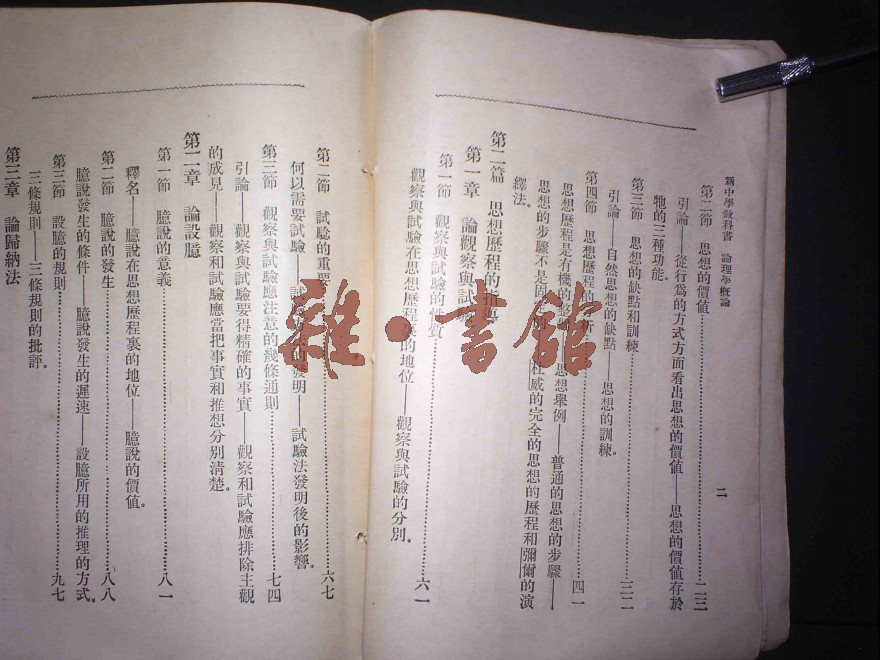 新中學教科書 論理學概論
二
第二節 思想的價值
二三
引論——從行爲的方式方面看出思想的價值——思想的價值存於
牠的三種功能。
第三節 思想的缺點和訓練
三二
引論——自然思想的缺點——思想的訓練。
第四節 思想歷程的 析
四一
思想歷程是有機的整 思想舉例——普通的思想的步驟——
思想的步驟不是固 杜威的完全的思想的歷程和彌爾的演
繹法。
第二篇 思想歷程的指導
第一章 論觀察與試驗
第一節 觀察與試驗的性質
六一
觀察與試驗在思想歷程裏的地位——觀察與試驗的分別。
第二節 試驗的重要
六七
何以需要試驗—— 發明——試驗法發明後的影響。
第三節 觀察與試驗應注意的幾條通則
七四
引論——觀察與試驗要得精確的事實——觀察和試驗應排除主觀
的成見——觀察和試驗應當把事實和推想分別清楚。
第二章 論設臆
第一節 臆說的意義
八一
釋名——臆說在思想歷程裏的地位——臆說的價值。
第二節 臆說的發生
八八
臆說發生的條件——臆說發生的遲速——設臆所用的推理的方式。
第三節 設臆的規則
九七
三條規則——三條規則的批評。
第三章 論歸納法
雜·書館